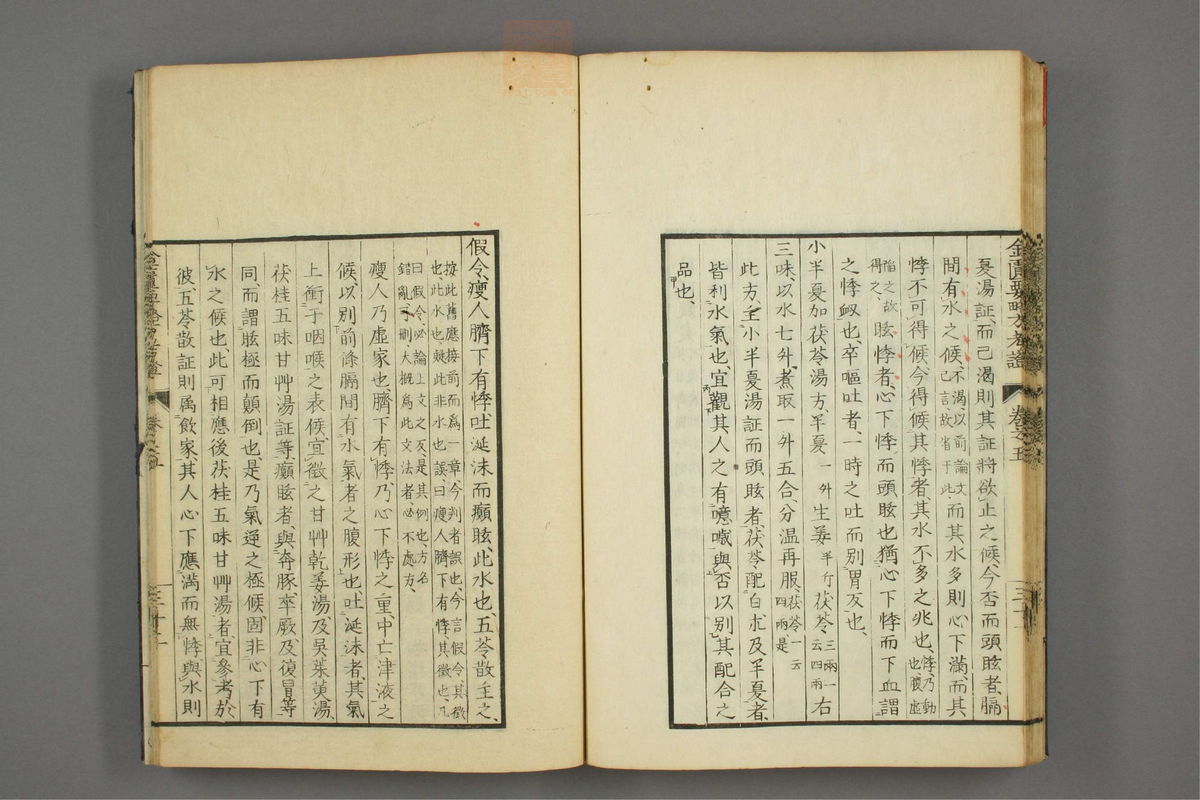 夏湯証、而已渴、則其証將欲止之候、今否而頭眩者、膈
間有水之候、不渴、以前論文已言、故省于此而其水多則心下滿、而其
悸不可得候、今得候其悸者、其水不多之兆也、悸、乃動也、腹虛
陷之故得之、眩悸者、心下悸、而頭眩也、猶心下悸而下血、謂
之悸衂也、卒嘔吐者、一時之吐而別胃反也、
小半夏加茯苓湯方、半夏一升生姜半斤茯苓、三兩一云四兩右
三味、以水七升、煮取一升五合、分温再服、茯苓一云四兩、是
此方、主小半夏湯証而頭眩者、茯苓、配白朮及半夏者、
皆利水氣也、宜觀其人之有噫噦與否、以別其配合之
品也、
假令瘦人臍下有悸、吐涎沫而癲眩、此水也、五苓散主之、
按此舊應接前而爲一章、今判者誤也、今言假令、其徵
也、此水也、棘此非水也誤、曰瘦人臍下有悸、其徵也、凡
曰假令、必論上文之反、是其例也、方名
錯亂、予刪、大概爲此文法者、必不處方、
瘦人乃虛家也、臍下有悸、乃心下悸之重、中亡津液之
候、以別前條膈間有水氣者之腹形也、吐涎沫者、其氣
上衝于咽喉之表候、宜徵之甘艸乾姜湯及吳茱萸湯、
茯桂五味甘艸湯証等、癲眩者、與奔豚、卒厥、及復冒等
同、而謂眩極而顛倒也、是乃氣逆之極候、固非心下有
水之候也、此可相應後茯桂五味甘艸湯者、宜參考於
彼、五苓散証則属飲家、其人心下應滿而無悸、與水則
金匱要略方析證
卷之五
三十二